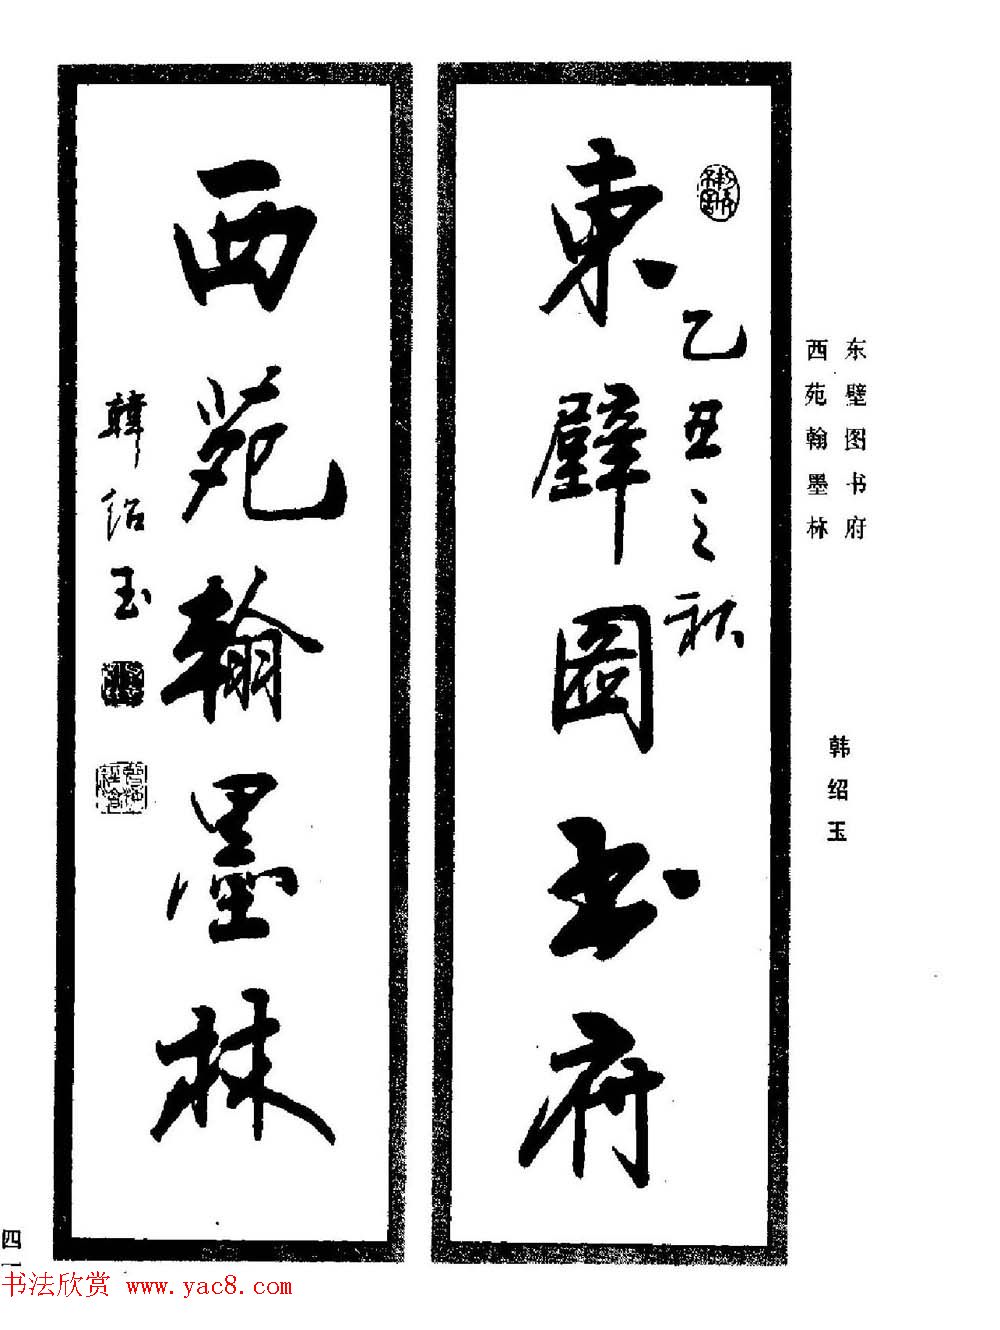 东壁图书府
西苑翰墨林
韩绍玉
東壁圖书府
乙丑之秋
西苑翰墨林
韓绍玉
四一
书法欣赏 www.yac8.com